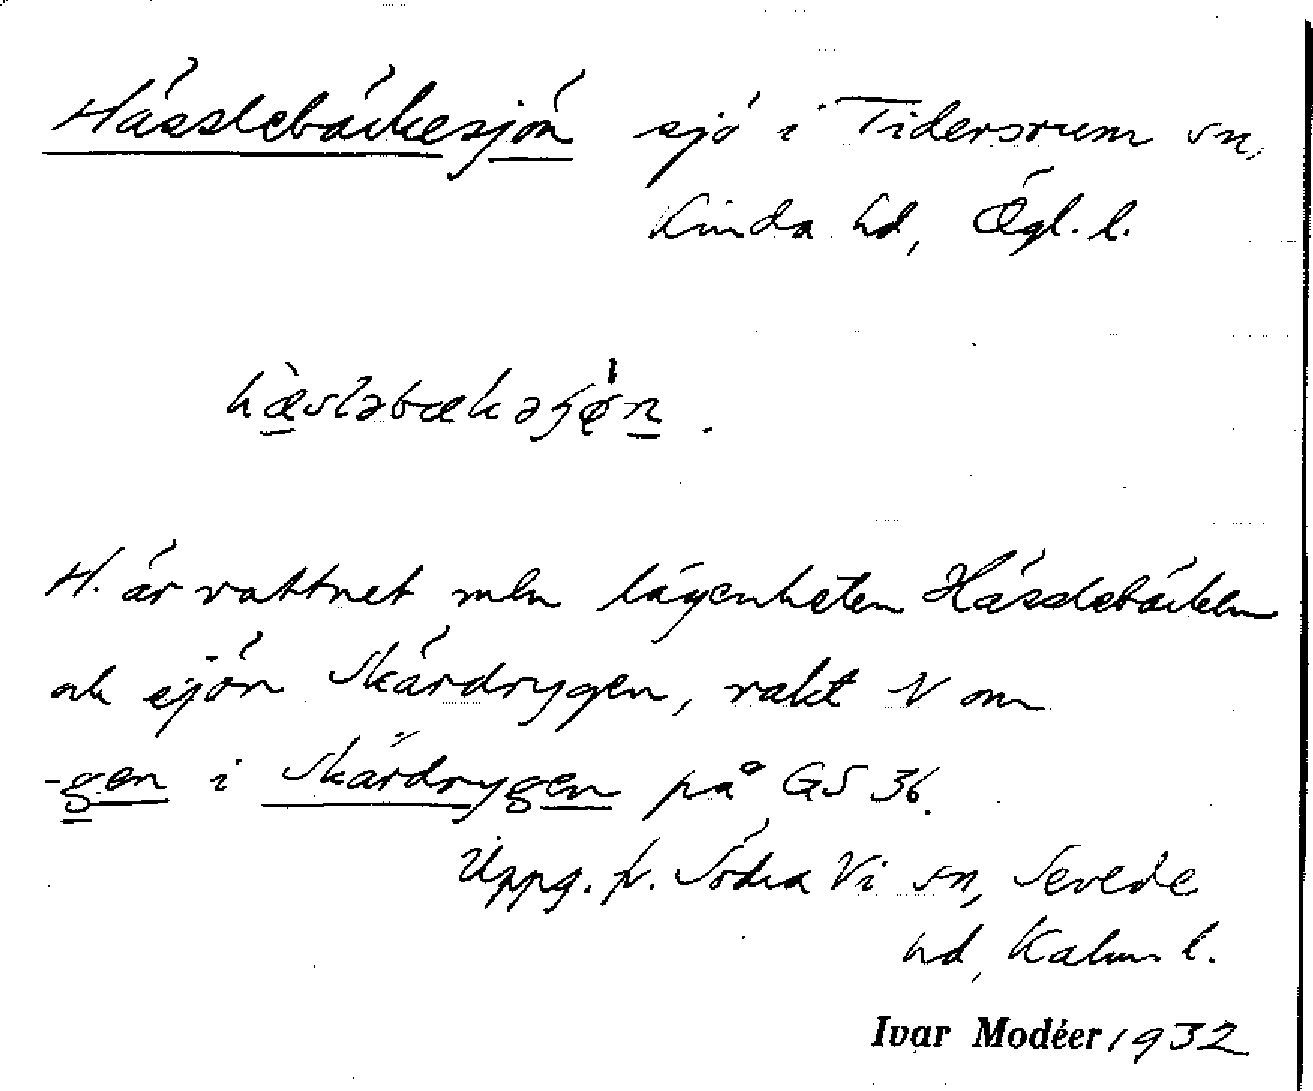 Hässlebäckesjön sjö i Tidersrum sn,
Kinda hd, Ögl. l.
hæ̀sləbækəʃø̍n.
H. är vattnet mln lägenheten Hässlebäcken
ok sjön Skärdrygen, rakt N om
-gen i Skärdrygen på GS 36.
Uppg. fr. Södra Vi sn, Sevede
hd, Kalm. l.
Ivar Modéer 1932